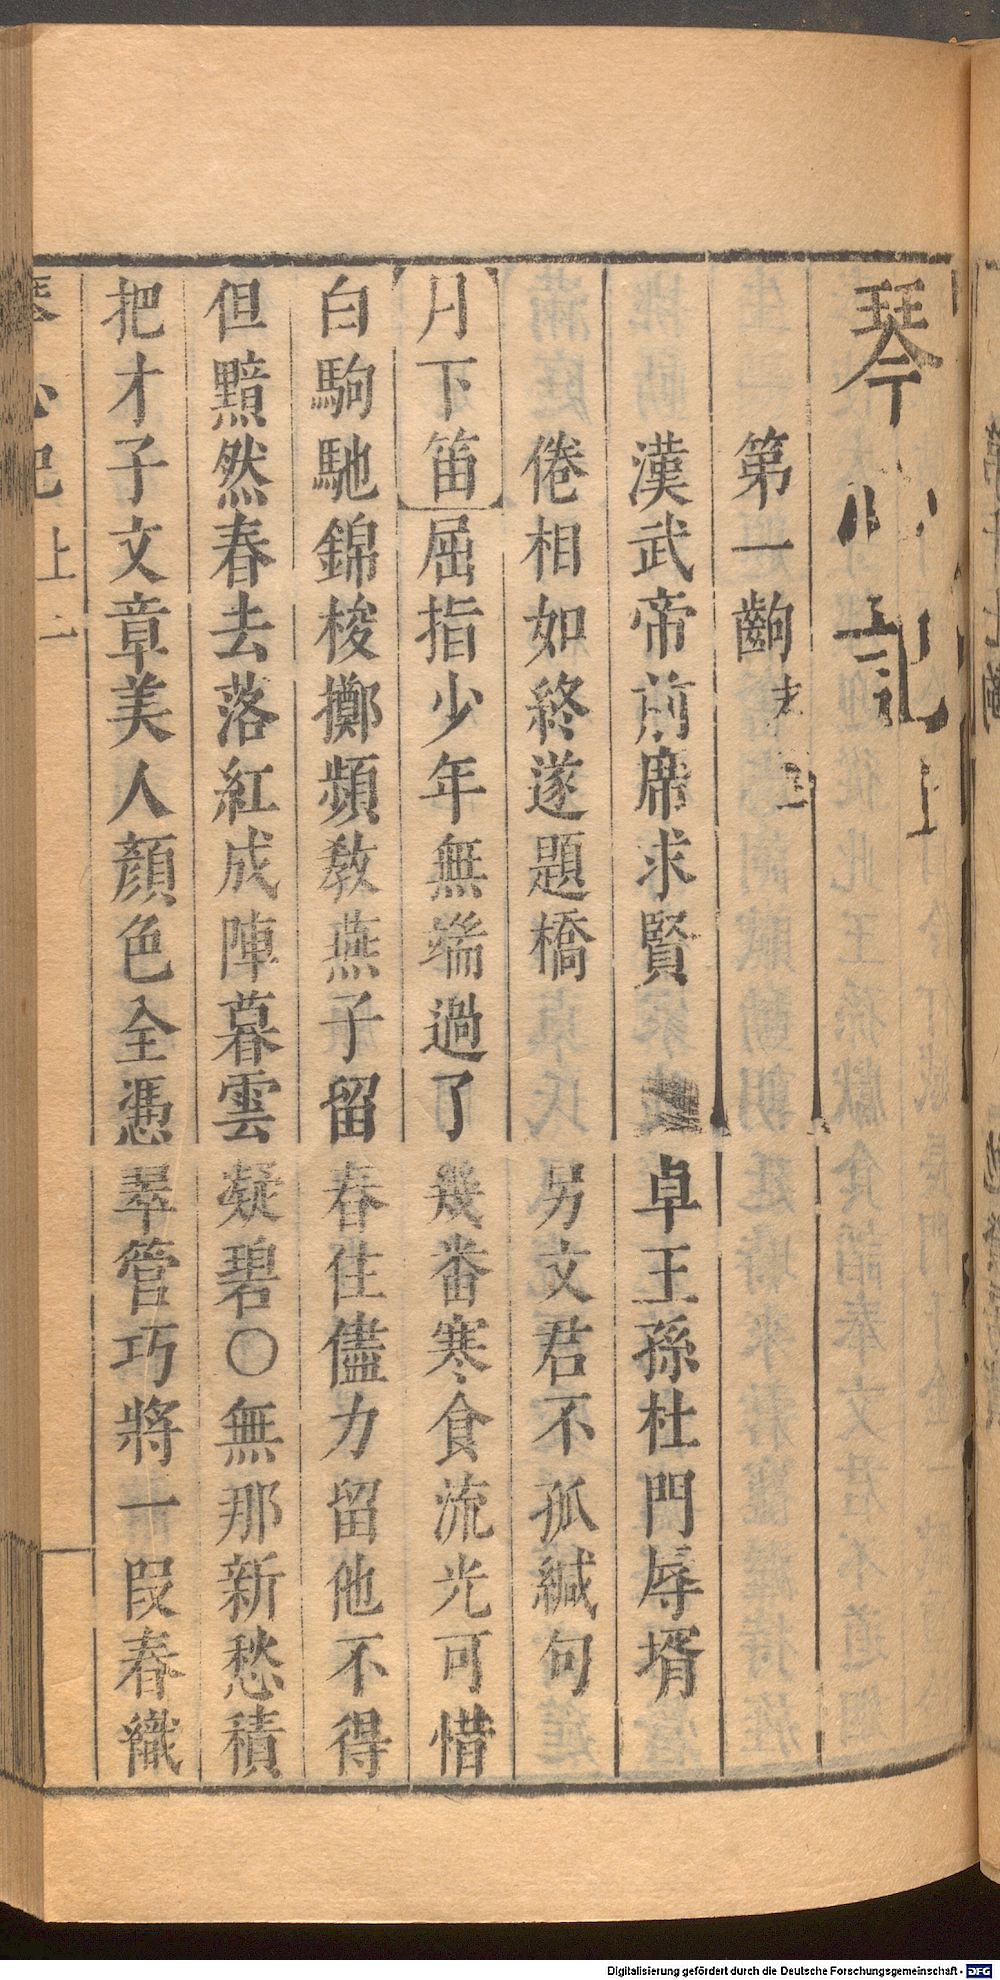 琴心記上
第一齣
漢武帝前席求賢　卓王孫杜門辱壻
倦相如終遂題橋　另文君不孤緘句
【月下笛】屈指少年無端過了幾番寒食流光可惜
白駒馳錦梭擲頻教燕子留春住儘力留他不得
但黯然春去落紅成陣暮雲凝碧○無那新愁積
把才子文章美人顏色全憑翠管巧將一段春織
琴心記上　一
Digitalisierung gefördert durch die Deutsche Forschungsgemeinschaft - DFG